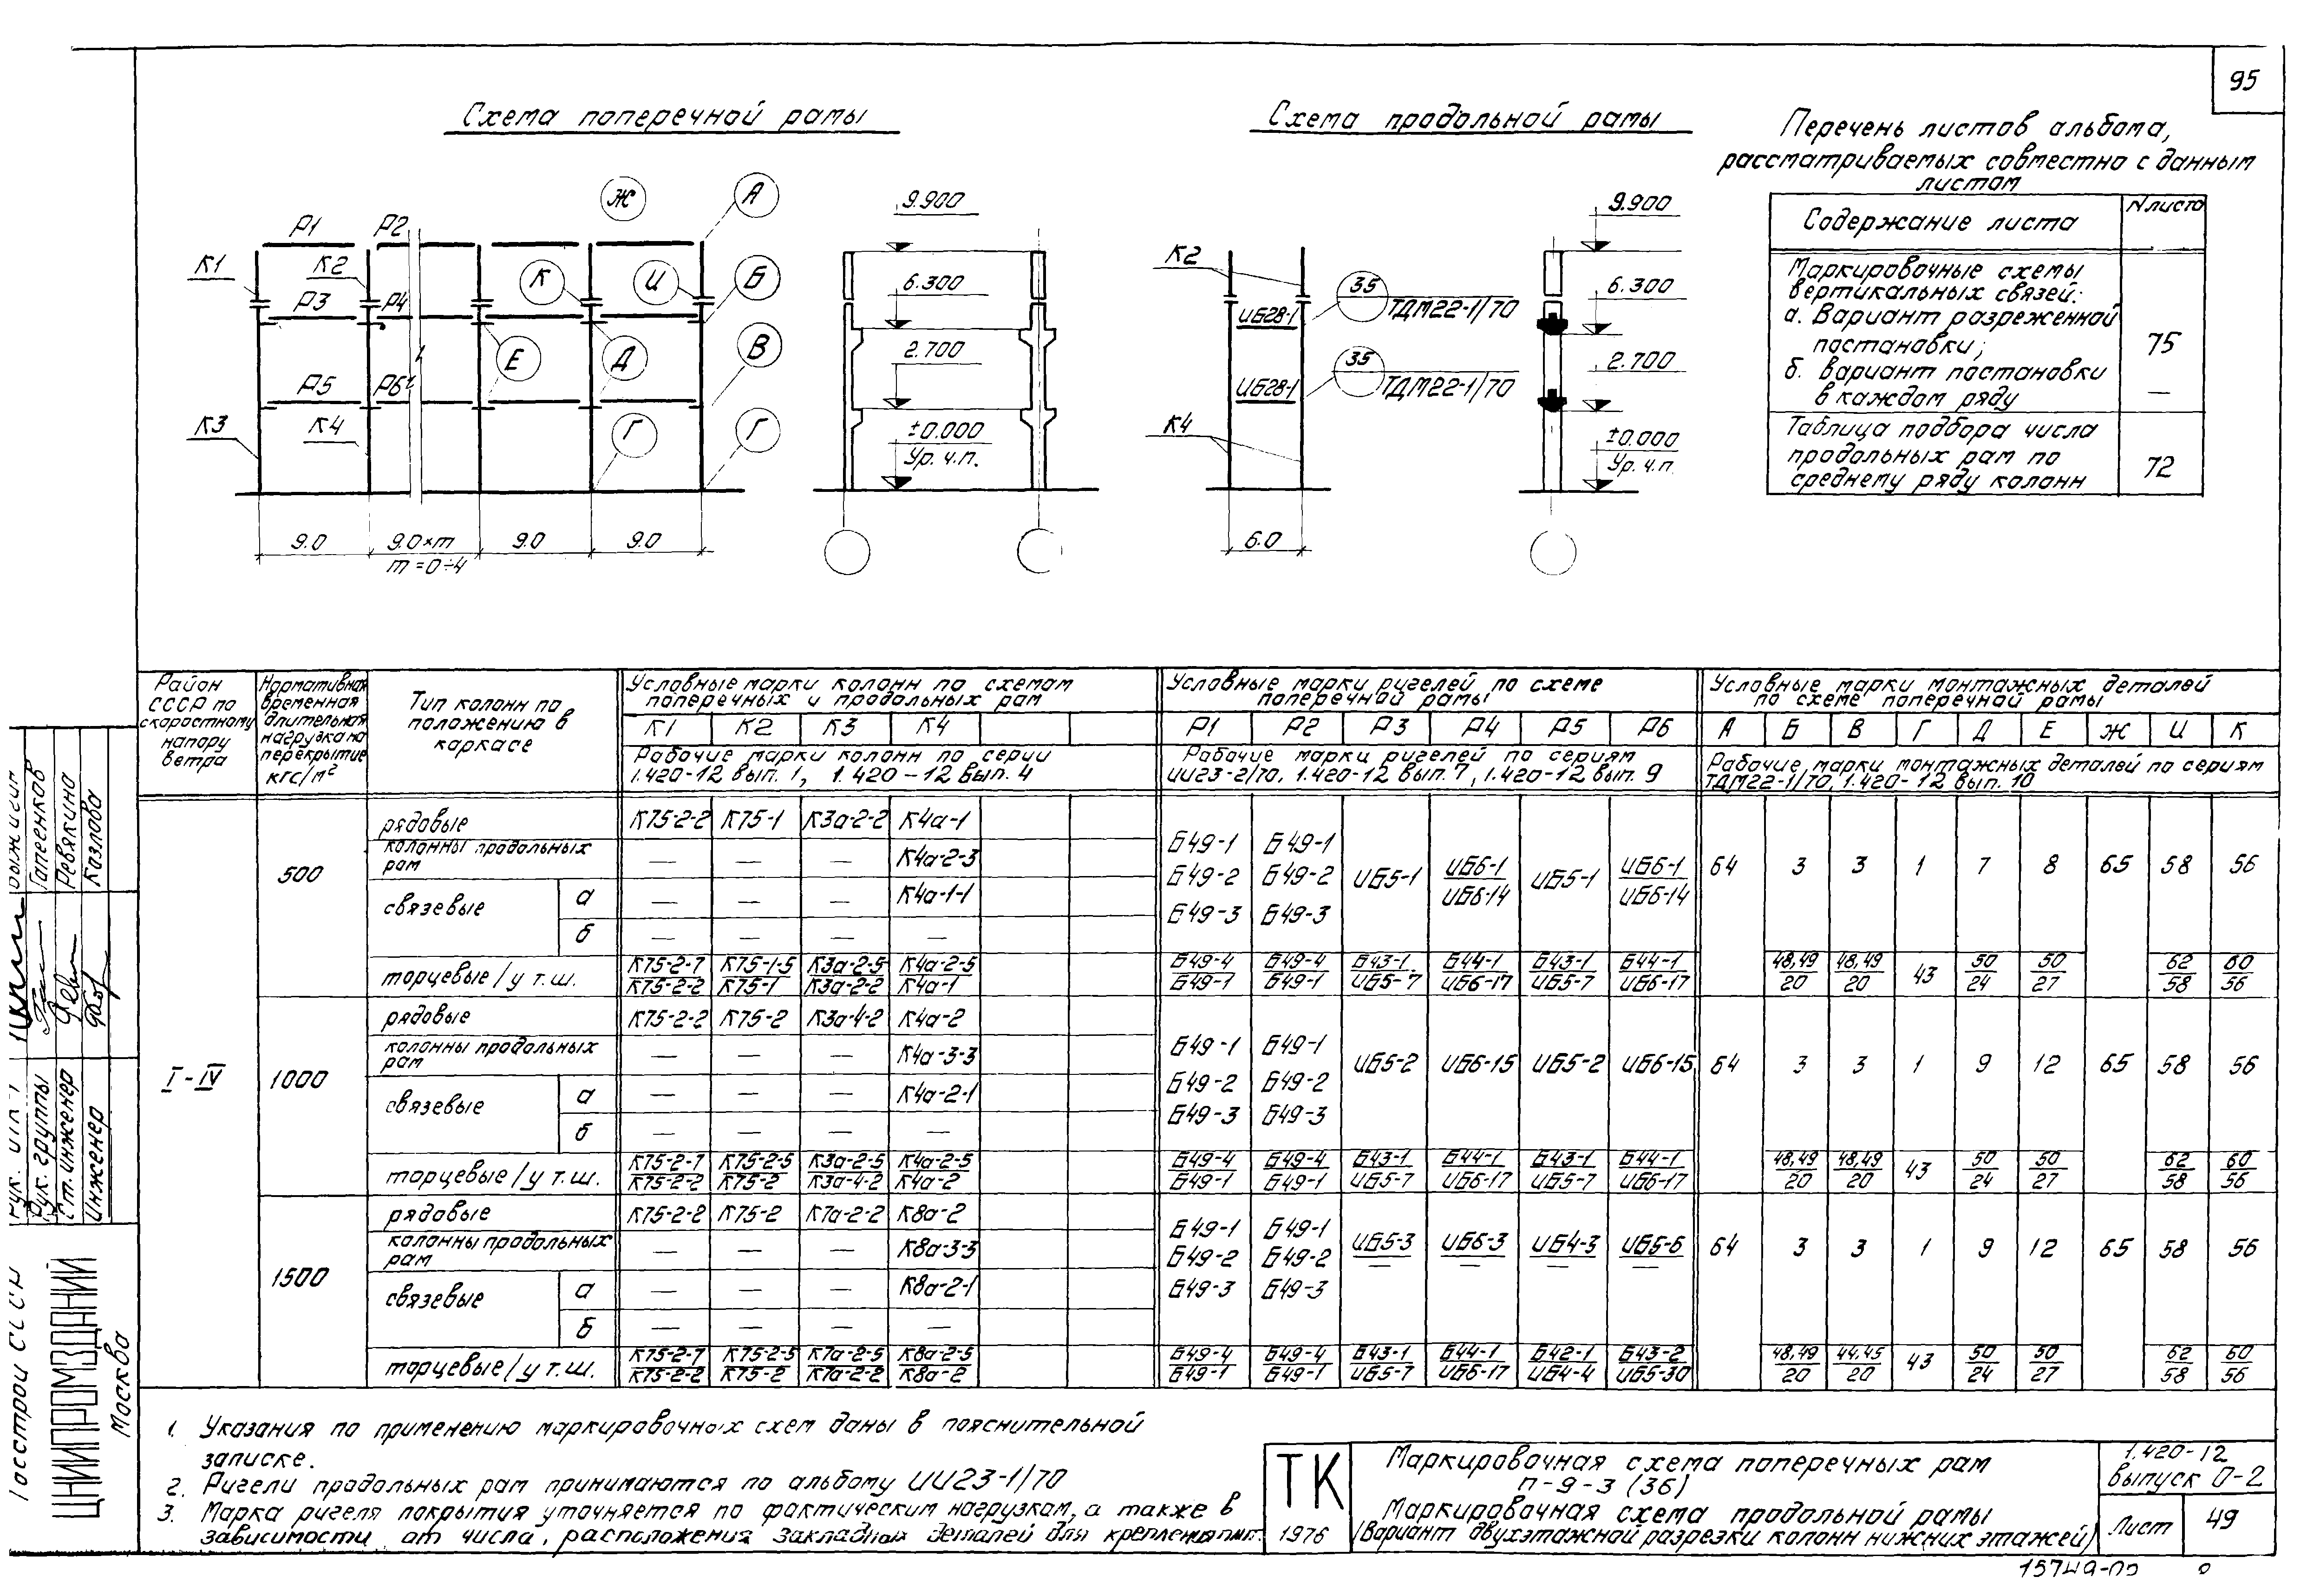 95
Схема поперечной рамы
Схема продольной рамы
Перечень листов альбома,
рассматриваемых совместно с данным
листом
Содержание листа
N листа
Маркировочные схемы
вертикальных связей:
а. Вариант разреженной
постановки;
75
б. вариант постановки
в каждом ряду
—
Таблица подбора числа
продольных рам по
среднему ряду колонн
72
Ж
А
Р1 Р2
К1 К2 К И Б
Р3 Р4
Е Д В
Р5 Р6
К3 К4 Г Г
9.0 9.0×m 9.0 9.0
m=0÷4
9.900
6.300
2.700
±0.000
Ур. ч.п.
К2
35
ИБ28-1 ТДМ22-1/70
35
ИБ28-1 ТДМ22-1/70
К4
6.0
9.900
6.300
2.700
±0.000
Ур. ч.п.
Район СССР по скоростному напору ветра
Нормативная временная длительная нагрузка на перекрытие кгс/м²
Тип колонн по положению в каркасе
Условные марки колонн по схемам
поперечных и продольных рам
К1 К2 К3 К4
Рабочие марки колонн по серии
1.420-12 вып. 1, 1.420-12 вып. 4
Условные марки ригелей по схеме
поперечной рамы
Р1 Р2 Р3 Р4 Р5 Р6
Рабочие марки ригелей по сериям
ИИ23-2/70, 1.420-12 вып. 7, 1.420-12 вып. 9
Условные марки монтажных деталей
по схеме поперечной рамы
А Б В Г Д Е Ж И К
Рабочие марки монтажных деталей по сериям
ТДМ22-1/70, 1.420-12 вып. 10
I-IV
500
рядовые К75-2-2 К75-1 К3а-2-2 К4а-1
колонны продольных рам — — — К4а-2-3
связевые а — — — К4а-1-1
б — — — —
Б49-1 Б49-1
Б49-2 Б49-2 ИБ5-1 ИБ6-1/ИБ6-14 ИБ5-1 ИБ6-1/ИБ6-14
Б49-3 Б49-3
64 3 3 1 7 8 65 58 56
торцевые/у т.ш. К75-2-7/К75-2-2 К75-1-5/К75-1 К3а-2-5/К3а-2-2 К4а-2-5/К4а-1 Б49-4/Б49-1 Б49-4/Б49-1 Б43-1/ИБ5-7 Б44-1/ИБ6-17 Б43-1/ИБ5-7 Б44-1/ИБ6-17 48,49/20 48,49/20 43 50/24 50/27 62/58 60/56
1000
рядовые К75-2-2 К75-2 К3а-4-2 К4а-2
колонны продольных рам — — — К4а-3-3
связевые а — — — К4а-2-1
б — — — —
Б49-1 Б49-1
Б49-2 Б49-2 ИБ5-2 ИБ6-15 ИБ5-2 ИБ6-15
Б49-3 Б49-3
64 3 3 1 9 12 65 58 56
торцевые/у т.ш. К75-2-7/К75-2-2 К75-2-5/К75-2 К3а-2-5/К3а-4-2 К4а-2-5/К4а-2 Б49-4/Б49-1 Б49-4/Б49-1 Б43-1/ИБ5-7 Б44-1/ИБ6-17 Б43-1/ИБ5-7 Б44-1/ИБ6-17 48,49/20 48,49/20 43 50/24 50/27 62/58 60/56
1500
рядовые К75-2-2 К75-2 К7а-2-2 К8а-2
колонны продольных рам — — — К8а-3-3
связевые а — — — К8а-2-1
б — — — —
Б49-1 Б49-1
Б49-2 Б49-2 ИБ5-3/— ИБ6-3/— ИБ4-3/— ИБ5-6/—
Б49-3 Б49-3
64 3 3 1 9 12 65 58 56
торцевые/у т.ш. К75-2-7/К75-2-2 К75-2-5/К75-2 К7а-2-5/К7а-2-2 К8а-2-5/К8а-2 Б49-4/Б49-1 Б49-4/Б49-1 Б43-1/ИБ5-7 Б44-1/ИБ6-17 Б42-1/ИБ4-4 Б43-2/ИБ5-30 48,49/20 44,45/20 43 50/24 50/27 62/58 60/56
1. Указания по применению маркировочных схем даны в пояснительной
записке.
2. Ригели продольных рам принимаются по альбому ИИ23-1/70
3. Марка ригеля покрытия уточняется по фактическим нагрузкам, а также в
зависимости от числа, расположения закладных деталей для крепления
ТК
1976
Маркировочная схема поперечных рам
п-9-3 (36)
Маркировочная схема продольной рамы
(Вариант двухэтажной разрезки колонн нижних этажей)
1.420-12
выпуск 0-2
Лист 49
Госстрой СССР
ЦНИИПРОМЗДАНИЙ
Москва
Рук. группы Гапеенков
Ст. инженер Ревякина
инженер Козлова